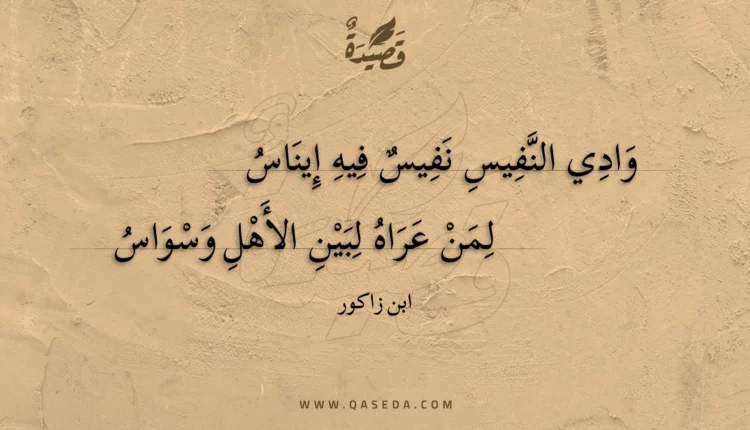 قَصِيدَةٌ
وَادِي النَّفِيسِ نَفِيسٌ فِيهِ إِينَاسُ
لِمَنْ عَرَاهُ لِبَيْنِ الأَهْلِ وَسْوَاسُ
ابن زاكور
WWW.QASEDA.COM